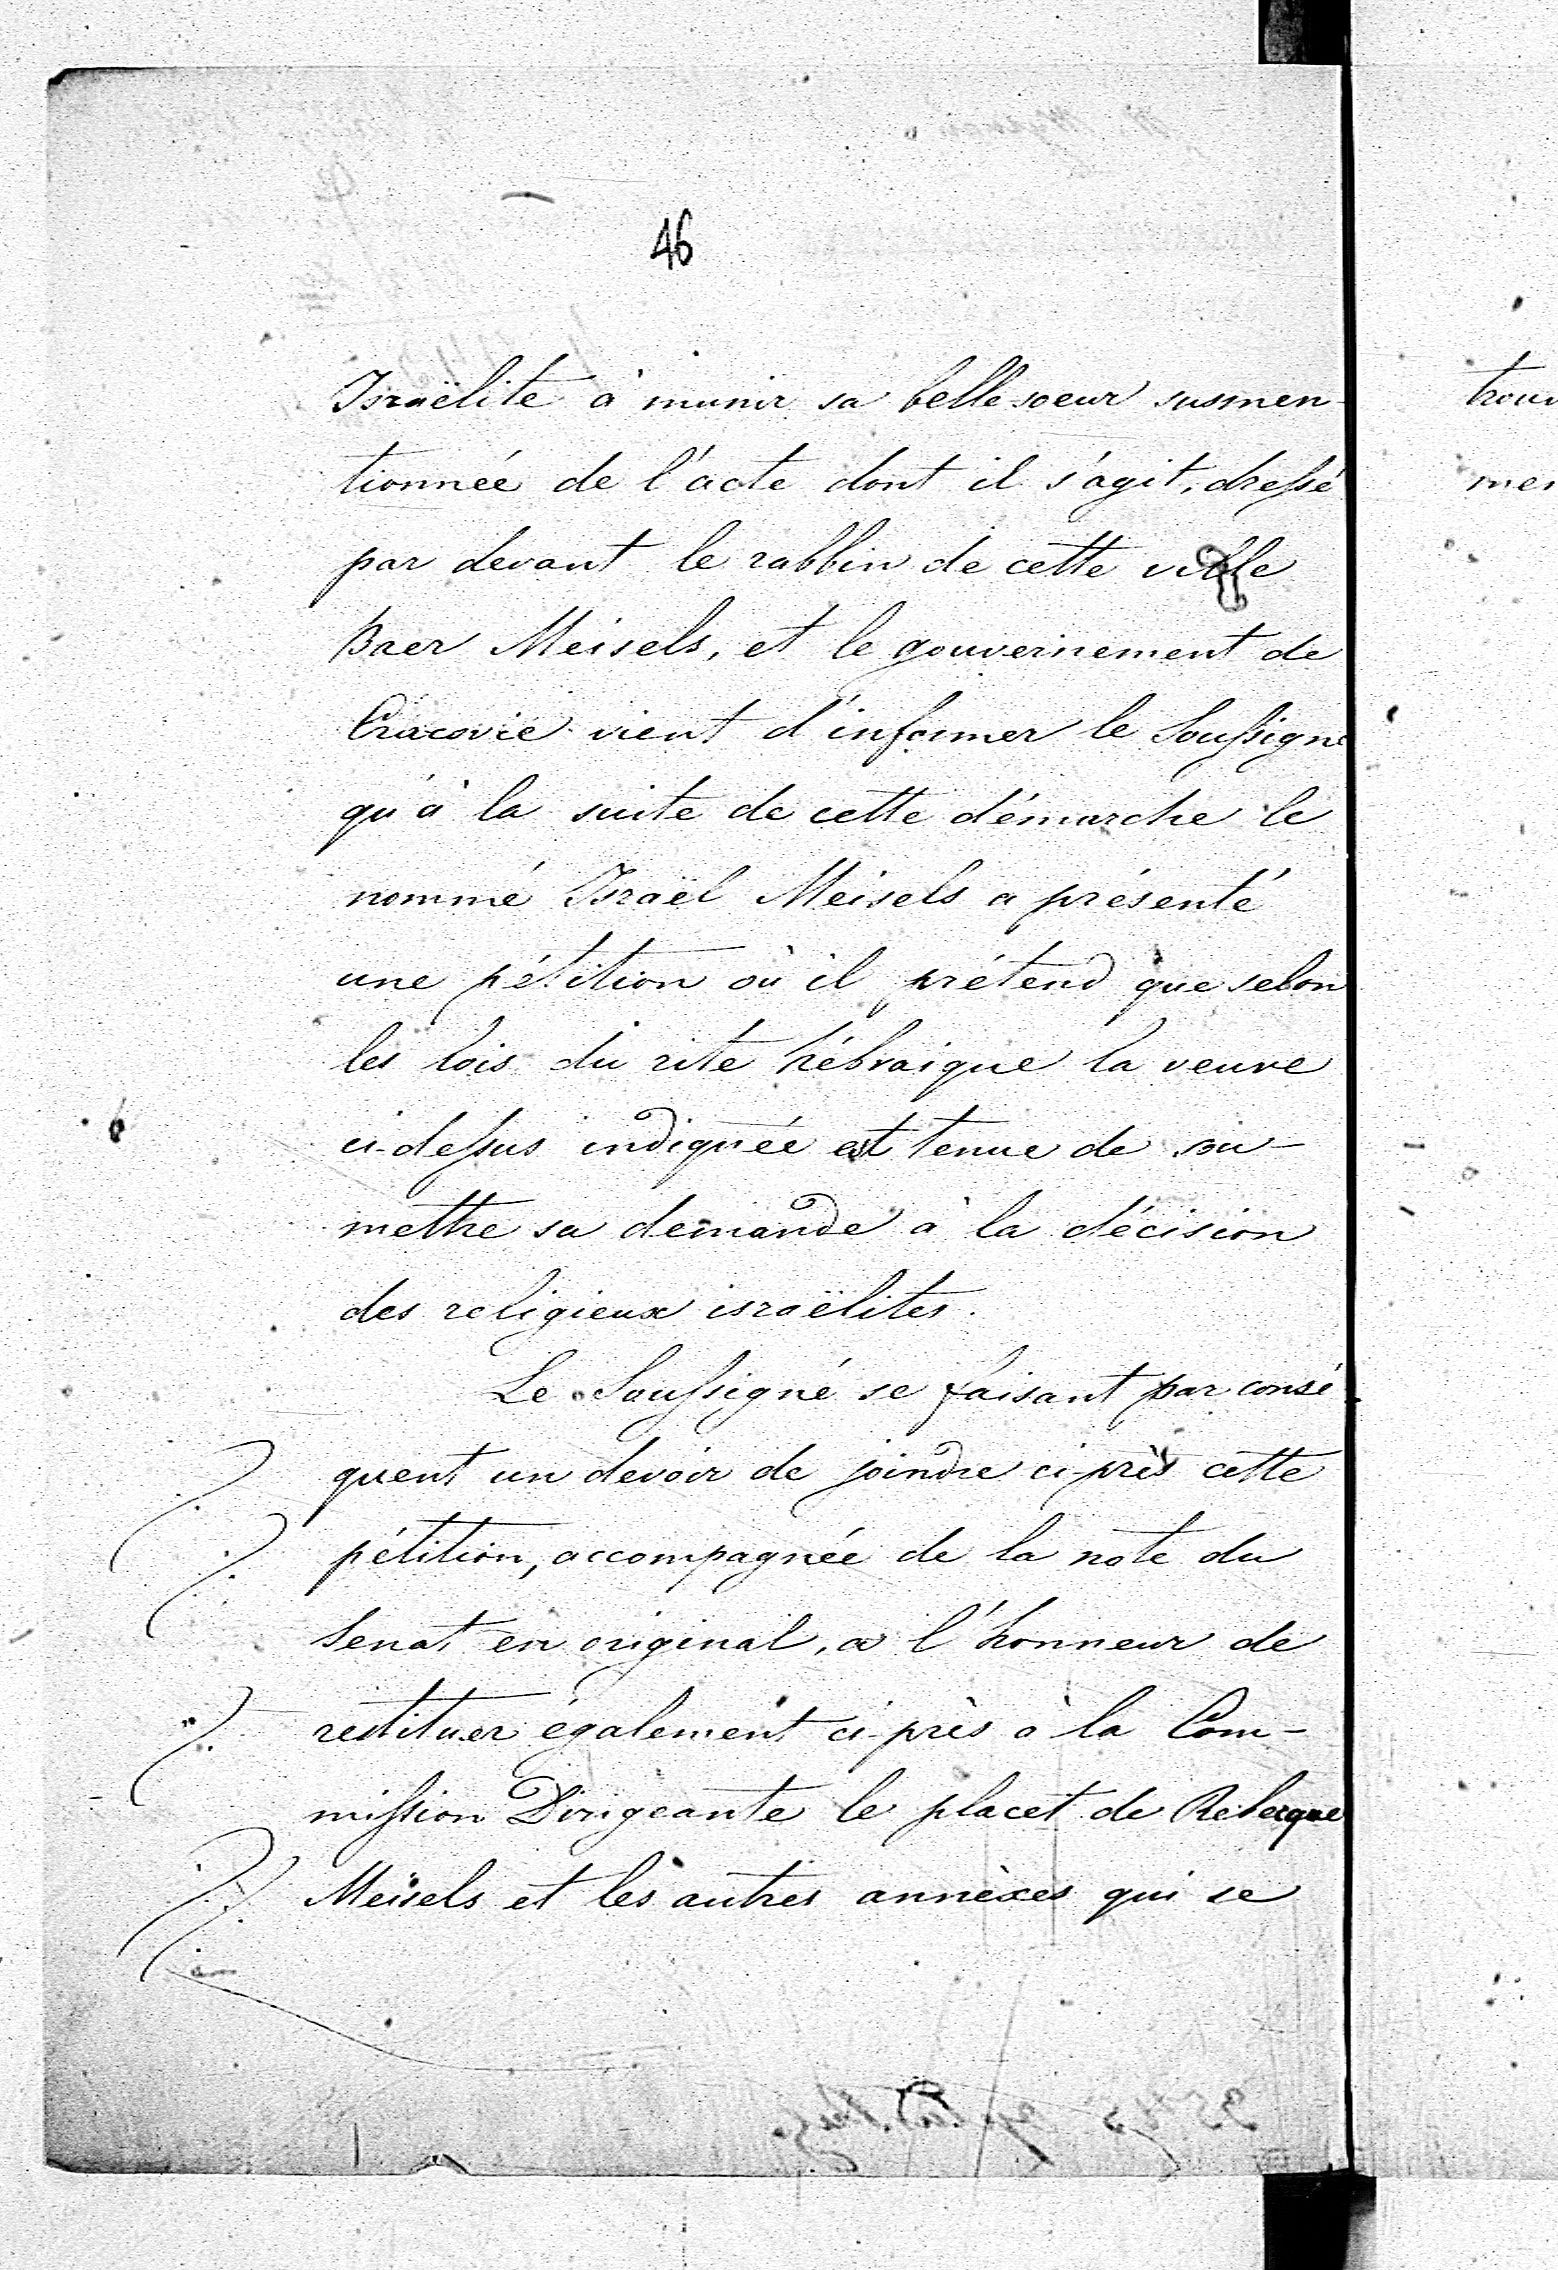 46
Israëlite à munir sa belle-soeur susmen-
tionnée de l'acte dont il s'agit, dressé
par devant le rabbin de cette ville
Baer Meisels, et le gouvernement de
Cracovie vient d'informer le Soussigné
qu'à la suite de cette démarche le
nommé Israël Meisels a présenté
une pétition où il prétend que selon
les lois du rite hébraique la veuve
ci-dessus indiquée est tenue de sou-
mettre sa demande à la décision
des religieux israëlites.
Le Soussigné se faisant par consé-
quent un devoir de joindre ci-près cette
pétition, accompagnée de la note du
Senat en original, a l'honneur de
restituer également ci-près à la Com-
mission Dirigeante le placet de Rebecque
Meisels et les autres annèxes qui se